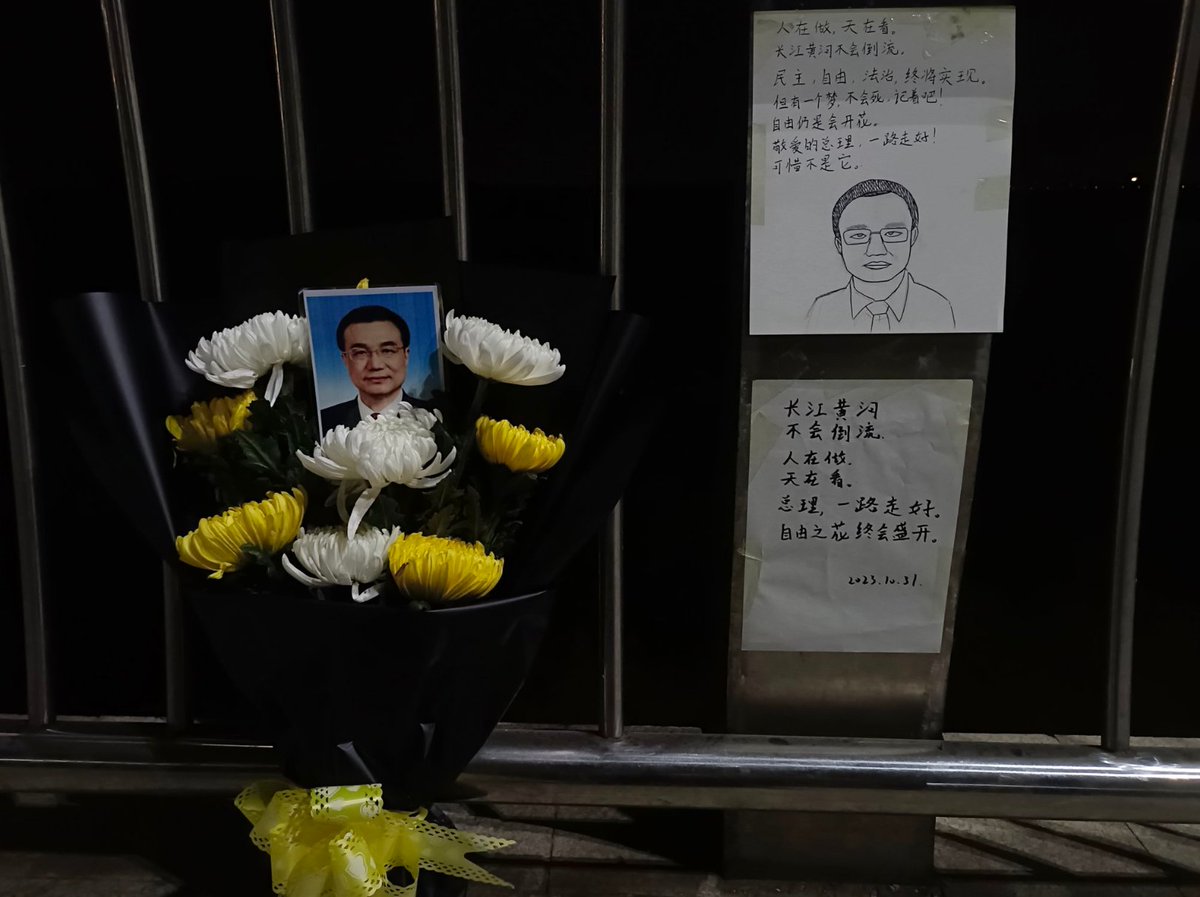 人在做，天在看。
长江黄河不会倒流。
民主，自由，法治，终将实现。
但有一个梦，不会死，记着吧！
自由仍是会开花。
敬爱的总理，一路走好！
可惜不是它。
长江黄河
不会倒流.
人在做.
天在看.
总理，一路走好。
自由之花终会盛开。
2023.10.31.